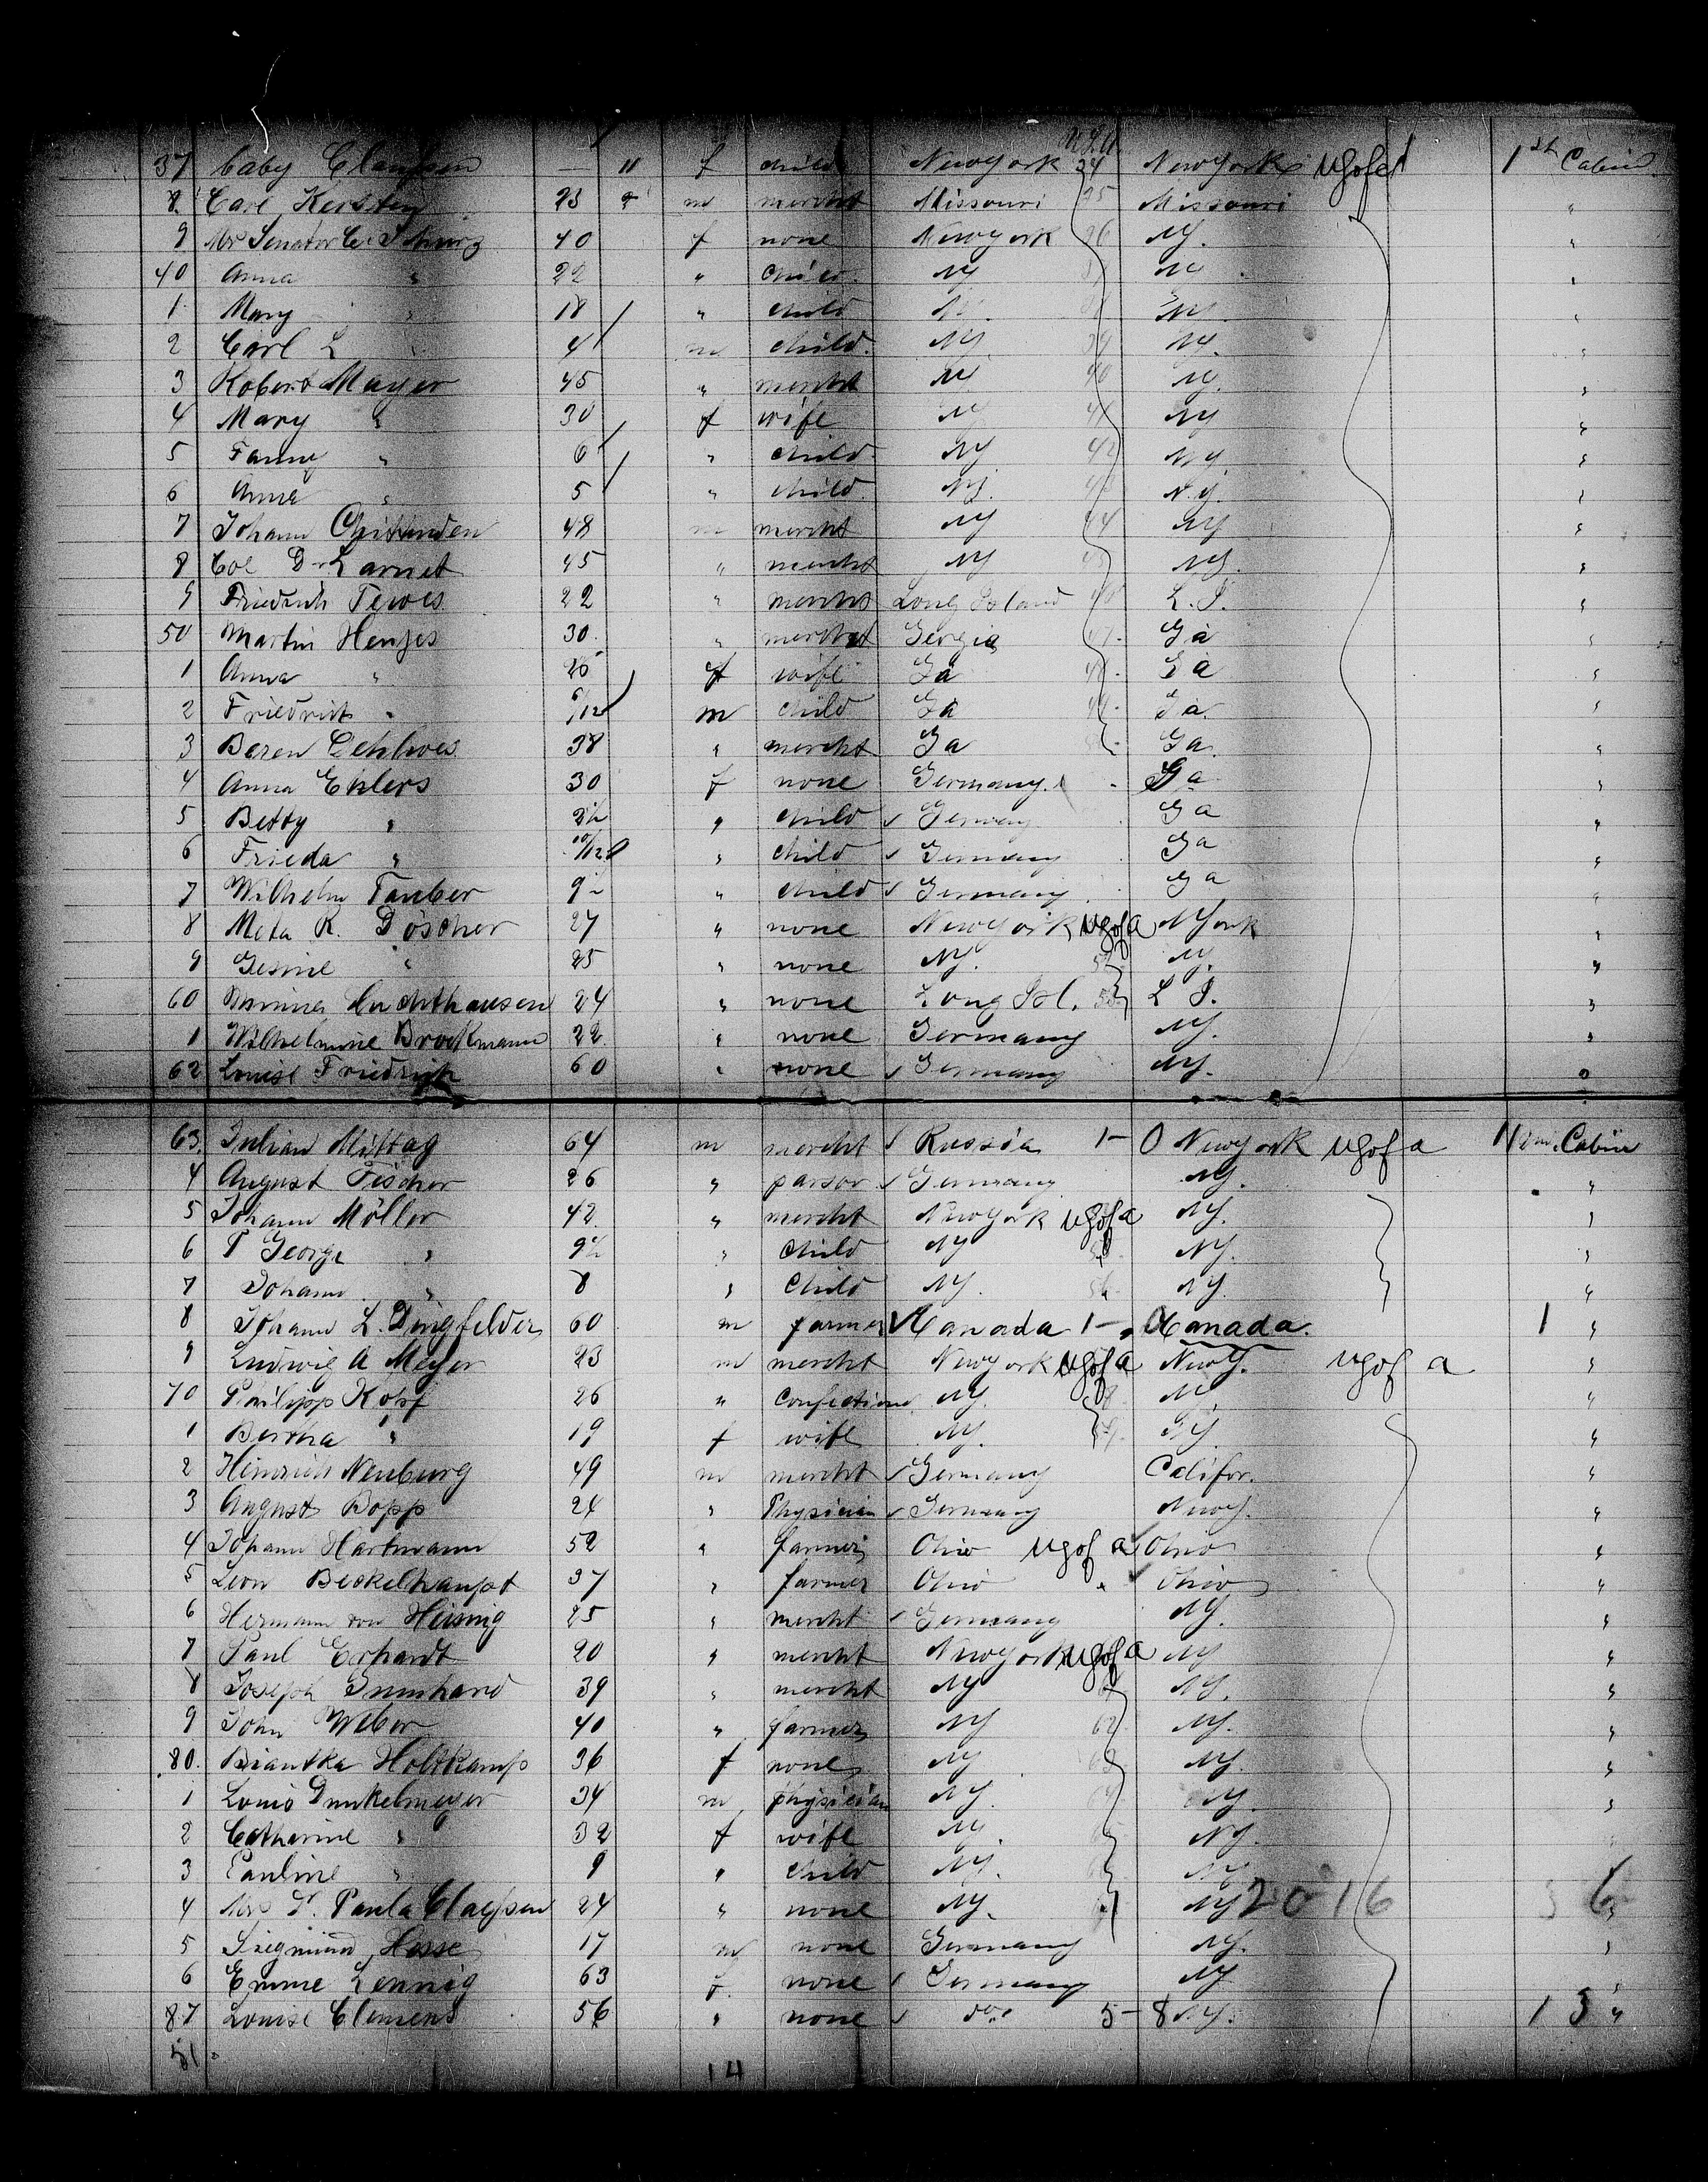 U.S.A
37 baby Claussen — 11 f child New York 34 New York U S of A 1st Cabin
8 Carl Kersten 23 m mercht Missouri 35 Missouri "
9 Mr Senator C. Schurz 40 f none New York 36 NY. "
40 Anna " 22 " child NY NY "
1 Mary " 18 " child N. NY. "
2 Carl L " 4 m child. NY. 39 NY. "
3 Robert Mayer 45 " mercht NY 40 NY. "
4 Mary " 30 f wife NY 41 NY "
5 Fanny " 6 " child NY 42 NY. "
6 Anna " 5 " child NY. N.Y. "
7 Johann Chittenden 48 m mercht NY 44 NY "
8 Col D. Larnet 45 " mercht NY NY. "
9 Friedrich Tewes 22 " mercht Long Island L.I. "
50 Martin Henjes 30. " mercht Georgia 47 Ga "
1 Anna " 25 f wife Ga 48 Ga "
2 Friedrich " 6/12 m child Ga 49 Ga. "
3 Beren Oehlwes 38 " mercht Ga Ga. "
4 Anna Ehlers 30 f none Germany. Ga "
5 Betty " 2½ " child Germany Ga "
6 Frieda " 10/12 " child Germany Ga "
7 Wilhelm Tauber 9 " child Germany Ga "
8 Meta R. Döscher 27 " none New York U S of A N York "
9 Gesine " 25 " none NY. NY. "
60 Minna Buchthausen 24 " none Long Isl. L I. "
1 Wilhelmine Brockmann 22. " none Germany NY. "
62 Louise Friedrich 60 " none Germany NY. "
63. Julian Mittag 64 m mercht Russia 1- 0 New York U S of A Cabin
4 August Fischer 26 " parsor Germany NY. "
5 Johann Möller 42. " mercht New York U S of A NY. "
6 P George " 9½ " child NY NY. "
7 Johann " 8 " child NY. 56 NY. "
8 Johann L. Dingfelder 60 m farmer Canada 1- Canada. 1 "
9 Ludwig A Meyer 23 m mercht New York U S of A New Y. U S of A "
70 Philipp Kopf 26 " Confectioner NY. NY. "
1 Bertha " 19 f wife NY. 59 NY. "
2 Heinrich Neuburg 49 m mercht Germany Califor. "
3 August Bopp 24 " Physician Germany New Y. "
4 Johann Hartmann 52 " farmer Ohio U S of A Ohio "
5 Leon Beckelhaupt 37 " farmer Ohio " Ohio "
6 Hermann von Heising 25 " mercht Germany NY. "
7 Paul Erhardt 20 " mercht New York U S of A NY "
8 Joseph 39 " mercht NY NY. "
9 John Weber 40 " farmer NY 62 NY. "
80. Biantka Holtkamp 36 f none NY 63 NY. "
1 Louis Dunkelmeyer 34 m physician NY. NY. "
2 Catharine " 32 f wife NY. NY. "
3 Pauline " 9 " child NY. NY "
4 Mrs D. Paula Claussen 24 " none NY. NY 2016 36 "
5 Siegmund Hesse 17 m none Germany NY. "
6 Emme Lennig 63 f. none Germany NY "
87 Louise Clemens 56 " none do. 5- 8 NY. 13 "
51 14